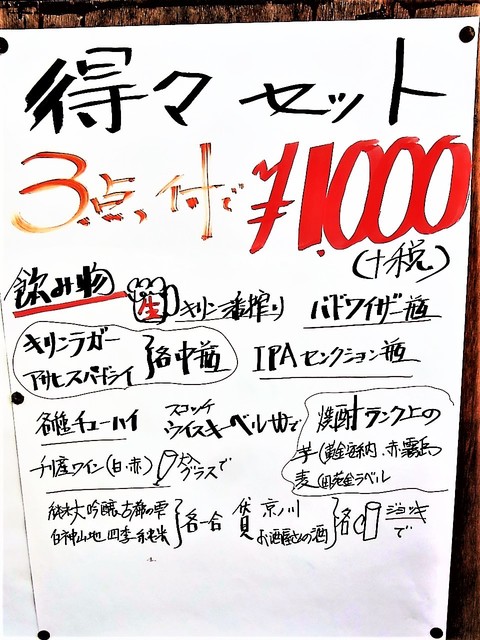 得々セット
3点付で ¥1,000
(+税)
飲み物 生 キリン一番搾り バドワイザー瓶
キリンラガー
アサヒスパードライ 各中瓶 IPAセンクション瓶
各種チューハイ スコッチウイスキーベル せで 焼酎ランク上の
チリ産ワイン(白・赤) グラスで 芋(黄金安納、赤霧島
麦 黄金ラベル
純米大吟醸、古都の雫
白神山地 四季 純米 各一合 伏見 京ノ川
お酒屋さんの酒 各 ジョッキで